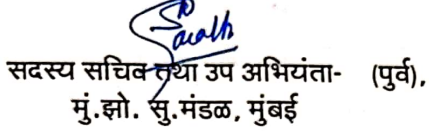 सदस्य सचिव तथा उप अभियंता- (पुर्व),
मुं.झो. सु.मंडळ, मुंबई